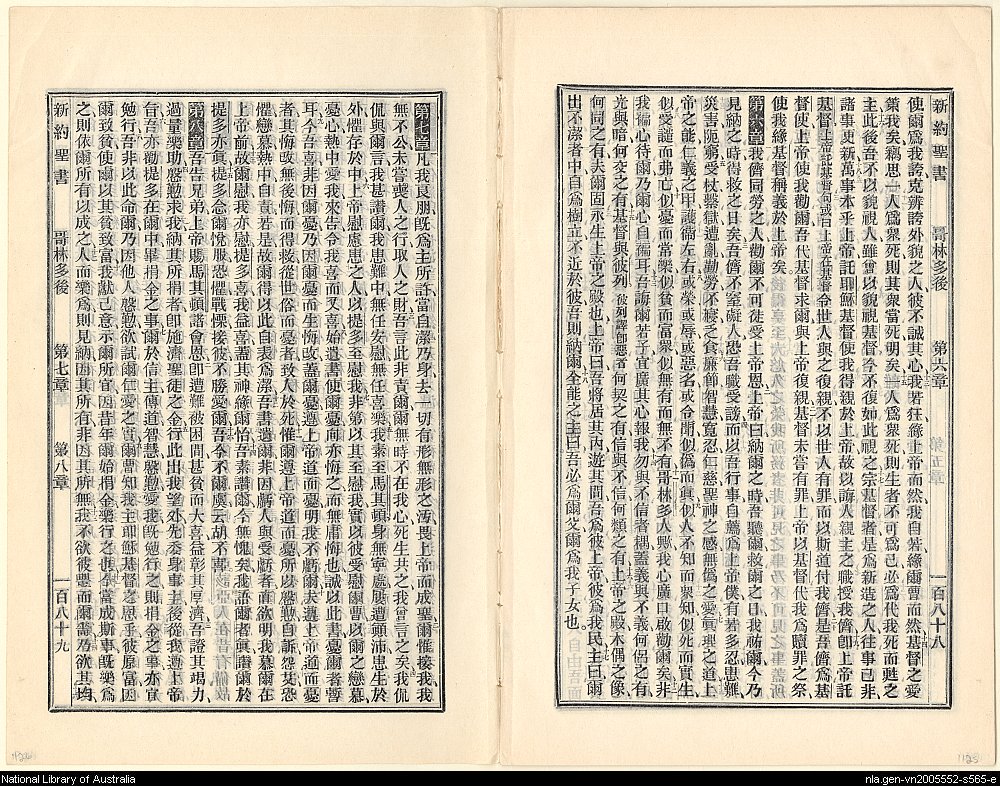 新約聖書 哥林多後 第六章 一百八十八
使爾爲我誇克辨誇外貌之人彼不誠其心我若狂緣上帝而然我自若緣爾曹而然基督之愛
策我矣竊思一人爲衆死則其衆當死明矣一人爲衆死則生者不可爲己必爲代我死而甦之
主此後吾不以貌視人雖曾以貌視基督今不復如此視之宗基督者是爲新造之人往事已非
諸事更新萬事本乎上帝託耶穌基督使我得親於上帝故以諭人親主之職授我儕卽上帝託
基督上帝託基督句或曰上帝在基督令世人與之復親不以世人有罪而以斯道付我儕是吾儕爲基
督使上帝使我勸爾吾代基督求爾與上帝復親基督未嘗有罪上帝以基督代我爲贖罪之祭
使我緣基督稱義於上帝矣
第六章我儕同勞之人勸爾不可徒受上帝恩上帝曰納爾之時吾聽爾救爾之日我祐爾今乃
見納之時得救之日矣吾儕不窒礙人恐吾職受謗而以吾行事自薦爲上帝僕有若多忍患難
災害阨窮受杖繫獄遭亂勤勞不寢乏食廉節智慧寬忍仁慈聖神之感無僞之愛眞理之道上
帝之能仁義之甲護衞左右或榮或辱或惡名或令聞似僞而眞似人不知而衆知似死而實生
似受譴而弗亡似憂而常樂似貧而富衆似無而無不有哥林多人歟我心廣口啟勸矣非
我褊心待爾乃爾心自褊耳吾誨爾若子宜廣其心報我勿與不信者耦蓋義與不義何侶之有
光與暗何交之有基督與彼列彼列譯卽惡者何契之有信與不信何類之有上帝之殿木偶之像
何同之有夫爾固永生上帝之殿也上帝曰吾將居其內遊其間吾爲彼上帝彼爲我民主曰爾
出不潔者中自爲樹立不近於彼吾則納爾全能之主曰吾必爲爾父爾爲我子女也
第七章凡我良朋旣爲主所許當自潔乃身去一切有形無形之汚畏上帝而成聖爾惟接我我
無不公未嘗喪人之行取人之財吾言此非責爾爾無時不在我心死生共之我曾言之矣我侃
侃與爾言我甚讚爾我患難中無任安慰無任喜樂我素至馬其頓身無寧處屢遭顚沛忠生於
外懼存於中上帝慰慮患之人以提多至慰我非第以其至慰我實以彼受慰爾曹以爾之戀慕
憂心熱中愛我來告令我喜而又喜始遺書使爾憂向亦悔之而無庸悔也誠以此書憂爾者暫
耳今吾喜非因爾憂乃因爾憂而生悔改蓋爾憂遵上帝道而憂明我不虧爾夫遵上帝道而憂
者其悔改無後悔而得救從世俗而憂者致人於死惟爾遵上帝道而憂所以慇勤自訴怨艾恐
懼戀慕熱中自責若是故爾得以此自表爲潔吾書遺爾非因虧人與受虧者而欲明我慕爾在
上帝前故爾慰我亦慰提多喜我益喜蓋其神緣爾怡吾素讚爾今無愧矣我語爾者眞讚爾於
提多亦眞提多念爾悅服恐懼戰慄接彼不勝愛爾吾今不爾虞云胡不喜
第八章吾告兄弟上帝賜馬其頓諸會恩卽遭難被困間甚貧而大喜益彰其厚濟吾證其竭力
過量樂助慇勤求我納其所捐者卽施濟聖徒之金行此出我望外先委身事主後從我遵上帝
旨吾亦勸提多在爾中畢捐金之事爾於信主傳道智慧慇懃愛我旣勉行之則捐金之事亦宜
勉行吾非以此命爾乃因他人慇懃欲試爾仁愛之實爾曹知我主耶穌基督之恩乎彼原富因
爾致貧使爾以其貧致富我獻己意示爾所宜因昔年爾始捐金樂行之也今當成斯事旣樂爲
之則依爾所有以成之人而樂爲則見納因其所有非因其所無我不欲彼豐而爾嗇乃欲其均
新約聖書 哥林多後 第七章 第八章 一百八十九
National Library of Australia
nla.gen-vn2005552-s565-e